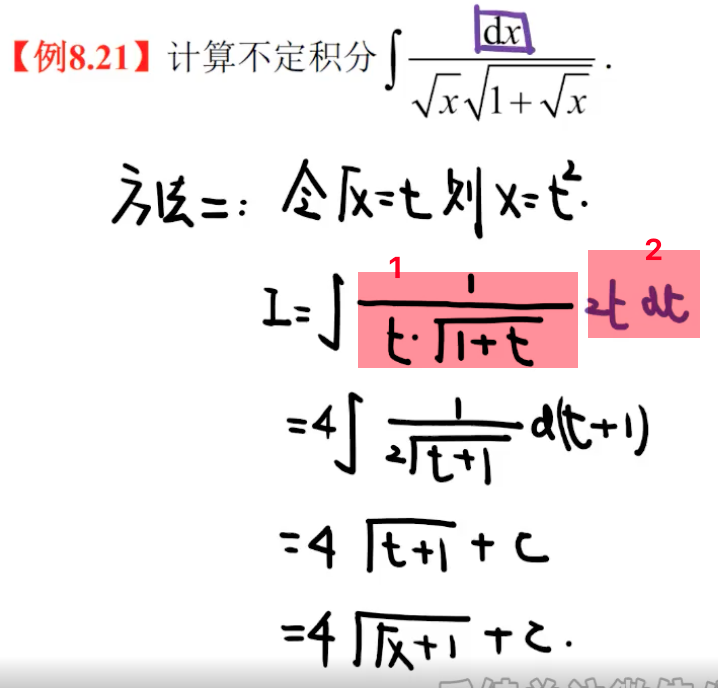 【例8.21】计算不定积分∫ dx / (√x √(1+√x)) .
方法二：令√x=t 则 x=t².
1 2
I=∫ 1 / (t·√(1+t)) 2t dt
=4∫ 1 / (2√(t+1)) d(t+1)
=4 √(t+1) + C
=4 √(√x+1) + C.